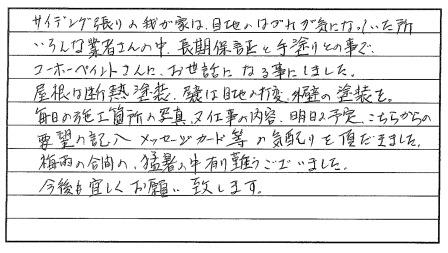 サイディング張りの我が家は、目地のはがれが気になっていた所
いろんな業者さんの中、長期保証と手塗りとの事で、
コーホーペイントさんに、お世話になる事にしました。
屋根は断熱塗装、壁は目地打変、外壁の塗装を。
毎日の施工箇所の写真、又仕事の内容、明日の予定、こちらからの
要望の記入 メッセージカード等の気配りを頂だきました。
梅雨の合間の、猛暑の中有り難うございました。
今後も宜しくお願い致します。